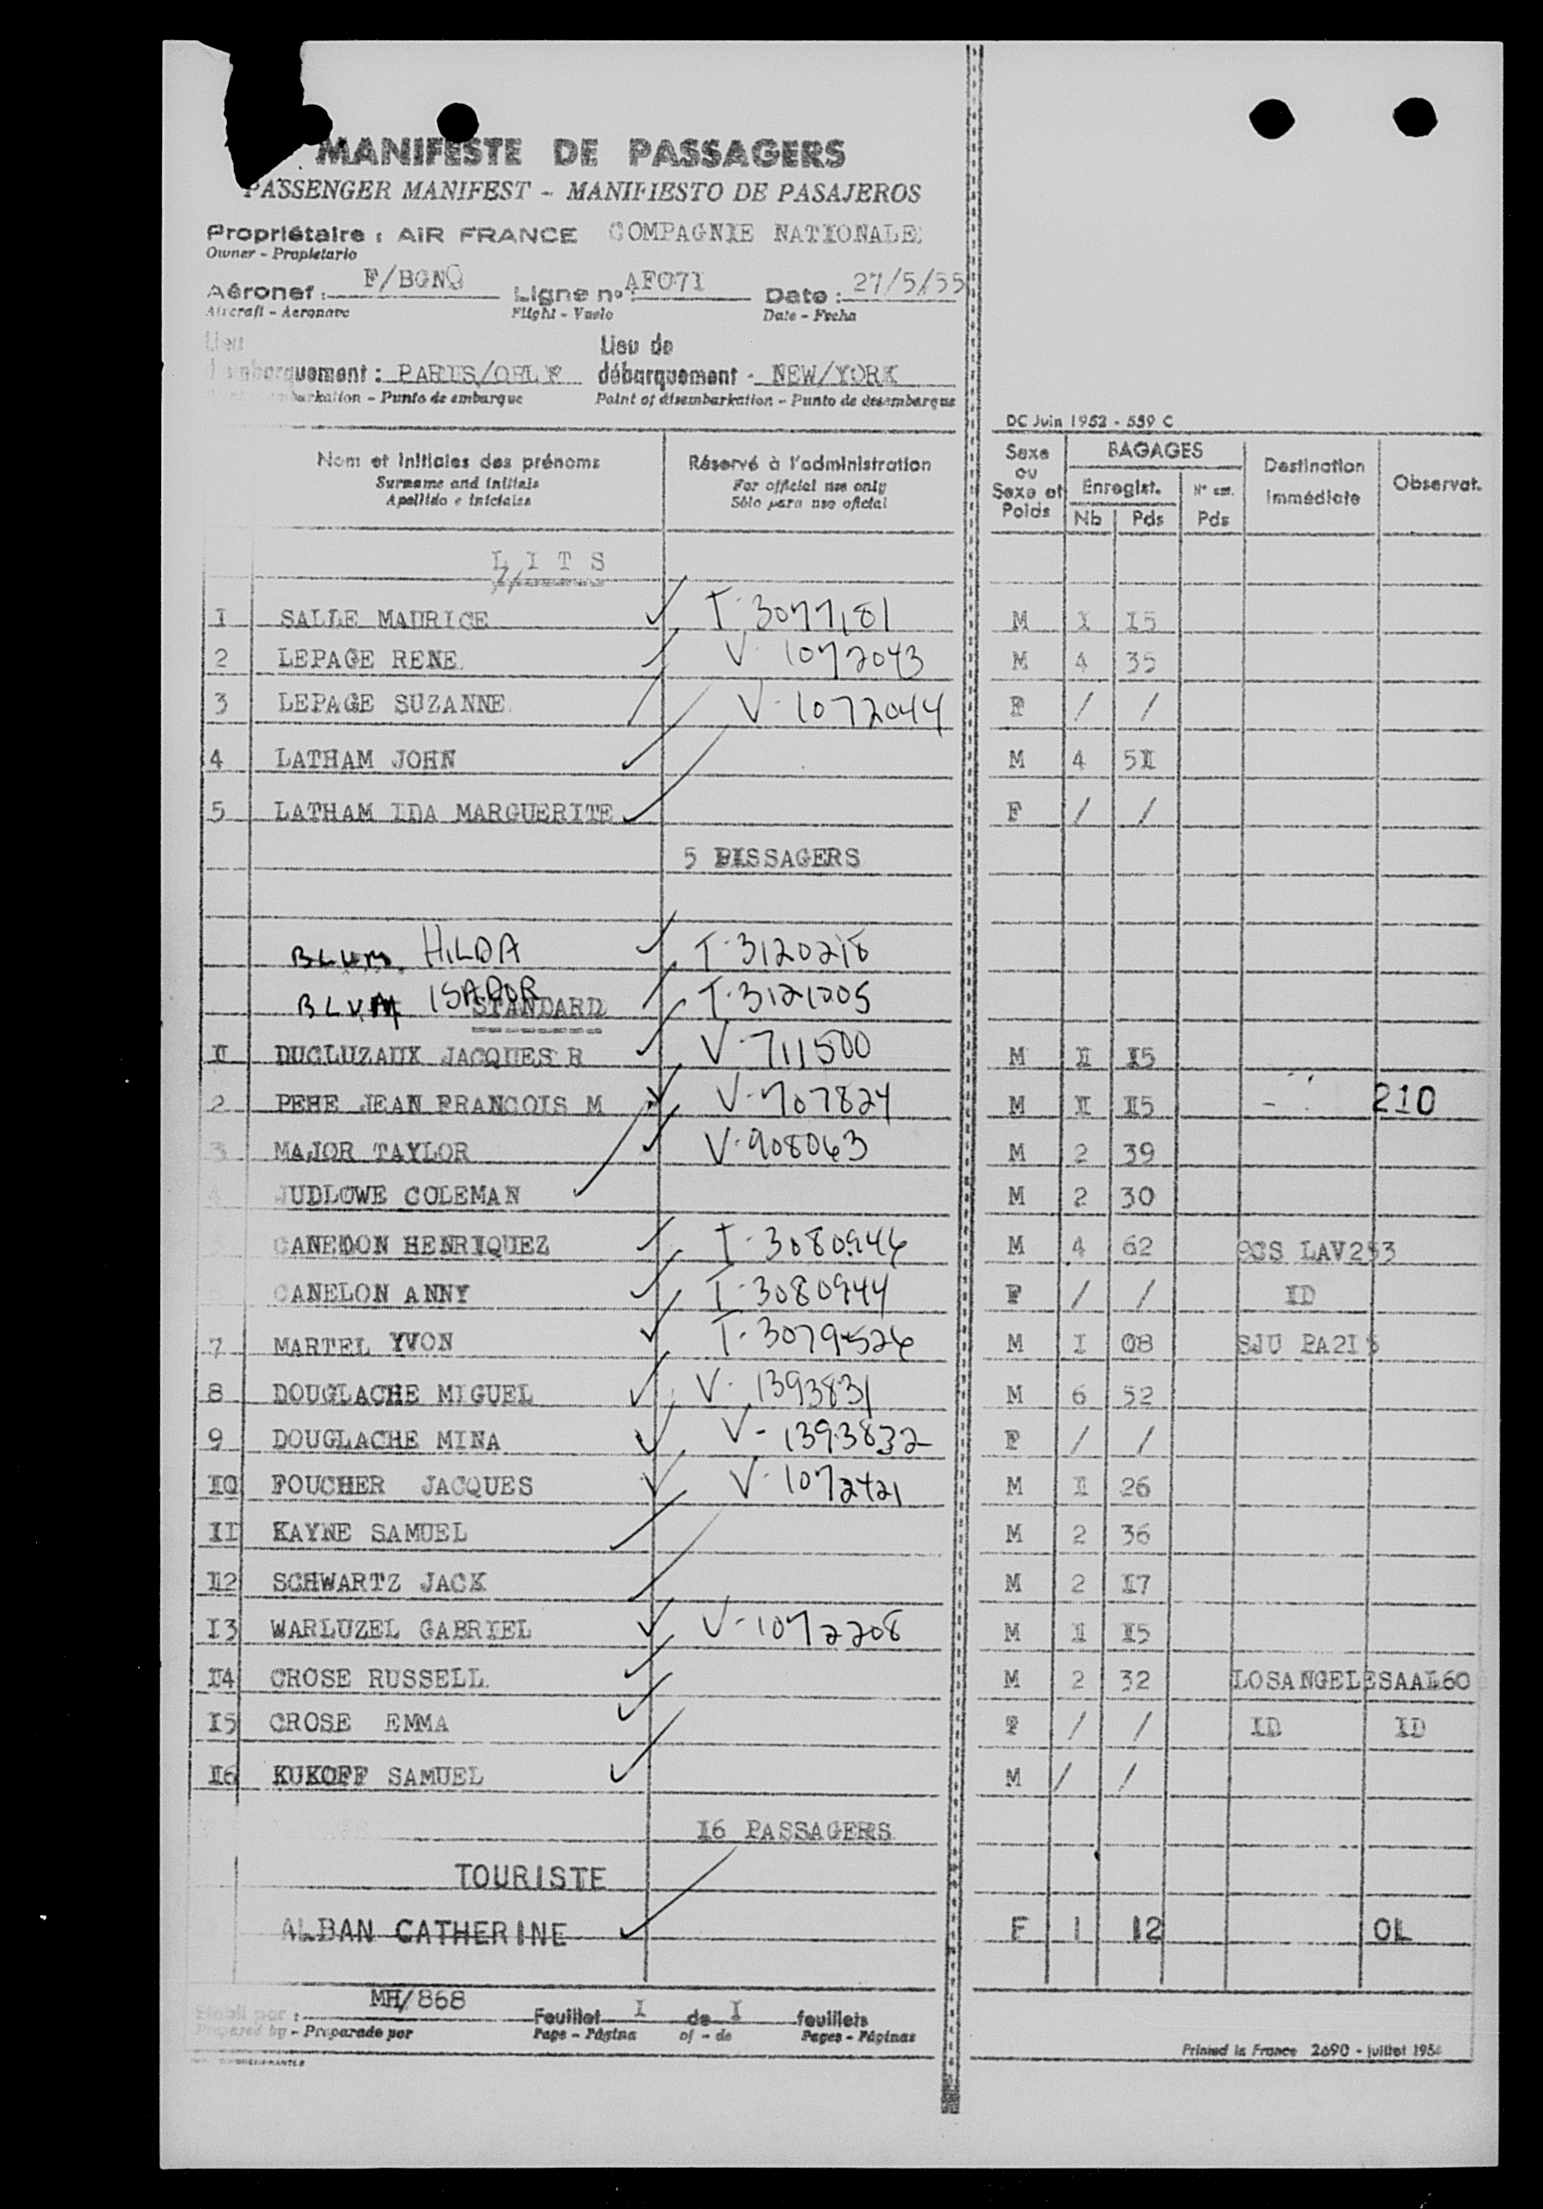 MANIFESTE DE PASSAGERS
PASSENGER MANIFEST - MANIFIESTO DE PASAJEROS
Propriétaire : AIR FRANCE COMPAGNIE NATIONALE
Owner - Propietario
Aéronef : F/BGNQ Ligne n° AF071 Date : 27/5/55
Aircraft - Aeronave Flight - Vuelo Date - Fecha
Lieu Lieu de
d'embarquement : PARIS/ORLY débarquement - NEW/YORK
embarkation - Punto de embarque Point of disembarkation - Punto de desembarque
DC Juin 1952 - 559 C
Nom et initiales des prénoms Réservé à l'administration Sexe ou Sexe et Poids BAGAGES Destination immédiate Observat.
Surname and initials For official use only Enregist.
Apellido e iniciales Sólo para uso oficial Nb Pds Pds
L I T S
I SALLE MAURICE T-3077181 M I I5
2 LEPAGE RENE V-1072043 M 4 35
3 LEPAGE SUZANNE V-1072044 F / /
4 LATHAM JOHN M 4 5I
5 LATHAM IDA MARGUERITE F / /
5 PASSAGERS
BLUM HILDA T-3120218
BLUM ISADOR T-3121205
STANDARD
I DUCLUZAUX JACQUES R V-711500 M I I5
2 PEHE JEAN FRANCOIS M V-707824 M I I5 210
3 MAJOR TAYLOR V-908063 M 2 39
4 JUDLOWE COLEMAN M 2 30
CANEDON HENRIQUEZ T-3080946 M 4 62 CCS LAV253
CANELON ANNY T-3080944 F / / ID
7 MARTEL YVON T-3079526 M I 08 SJU PA2I5
8 DOUGLACHE MIGUEL V-1393831 M 6 52
9 DOUGLACHE MINA V-1393832 F / /
I0 FOUCHER JACQUES V-1072421 M I 26
II KAYNE SAMUEL M 2 36
I2 SCHWARTZ JACK M 2 I7
I3 WARLUZEL GABRIEL V-1072208 M I I5
I4 CROSE RUSSELL M 2 32 LOSANGELESAAL60
I5 CROSE EMMA F / / ID ID
I6 KUKOFF SAMUEL M / /
I6 PASSAGERS
TOURISTE
ALBAN CATHERINE F 1 12 OL
Etabli par : MH/868 Feuillet I de I feuillets
Prepared by - Preparado por Page - Página of - de Pages - Páginas
Printed in France 2690 - juillet 1954